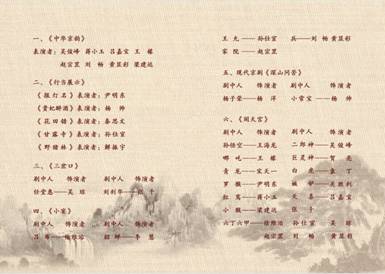 一、《中华京韵》
表演者：吴俊峰 蒋小玉 吕嘉宝 王
赵宗罡 刘畅 黄显彤 梁建远
二、《行当展示》
《报灯名》表演者：尹明东
《贵妃醉酒》表演者：杨帅
《花田错》表演者：秦思文
《甘露寺》表演者：孙仕宣
《野猪林》表演者：解振宇
三、《三岔口》
剧中人 饰演者 剧中人 饰演者
任堂惠——吴 刘利华——张千
四、《小宴》
剧中人 饰演者 剧中人 饰演者
吕布——徐维治 貂蝉——李慧
王允——孙仕宣 兵——刘畅 黄显彤
家院——赵宗罡
五、现代京剧《深山问苦》
剧中人 饰演者 剧中人 饰演者
杨子荣——杨洋 小常宝——杨帅
六、《闹天宫》
剧中人 饰演者 剧中人 饰演者
孙悟空——王海龙 二郎神——吴俊峰
哪吒——王 巨灵神——贺龙
青龙——宋天一 白虎——袁丁
罗猴——尹明东 ——吴胜利
红鸾——蒋小玉 天喜——吕嘉宝
小猴——梁建远 张千
六丁六甲——徐维治 孙仕宣 吴
赵宗罡 刘畅 黄显彤